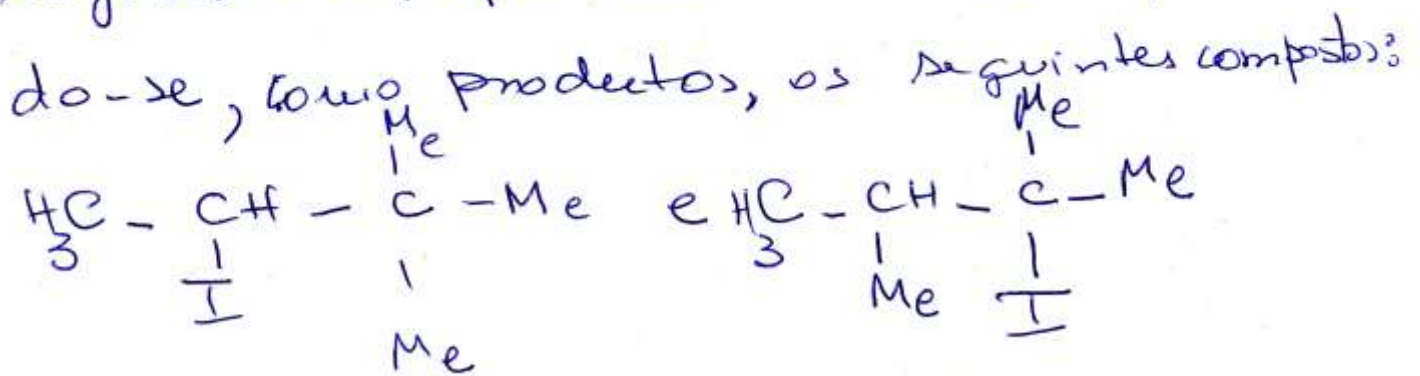 do-se, como productos, os seguintes compostos:
Me Me
H3C - CH - C - Me e H3C - CH - C - Me
I Me I
Me